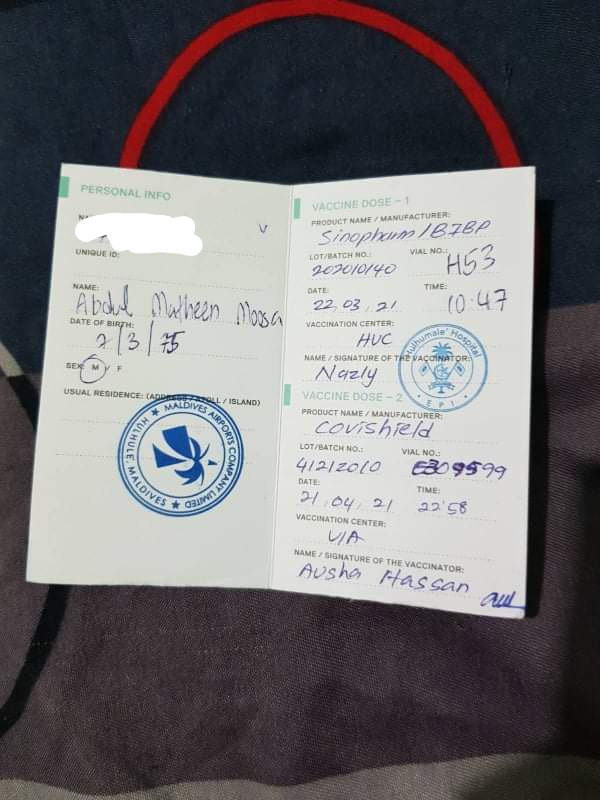 PERSONAL INFO
V
UNIQUE ID:
NAME:
Abdul Matheen Moosa
DATE OF BIRTH:
2/3/75
SEX: M / F
USUAL RESIDENCE: (ADDRESS / ATOLL / ISLAND)
MALDIVES AIRPORTS COMPANY LIMITED
HULHULE' MALDIVES
VACCINE DOSE - 1
PRODUCT NAME / MANUFACTURER:
Sinopharm / BIBP
LOT/BATCH NO.: VIAL NO.:
202010140 H53
DATE: TIME:
22.03.21 10:47
VACCINATION CENTER:
HUC
NAME / SIGNATURE OF THE VACCINATOR:
Nazly
Hulhumale' Hospital
E P I
VACCINE DOSE - 2
PRODUCT NAME / MANUFACTURER:
Covishield
LOT/BATCH NO.: VIAL NO.:
4121Z010 9599
DATE: TIME:
21.04.21 22:58
VACCINATION CENTER:
VIA
NAME / SIGNATURE OF THE VACCINATOR:
Ausha Hassan